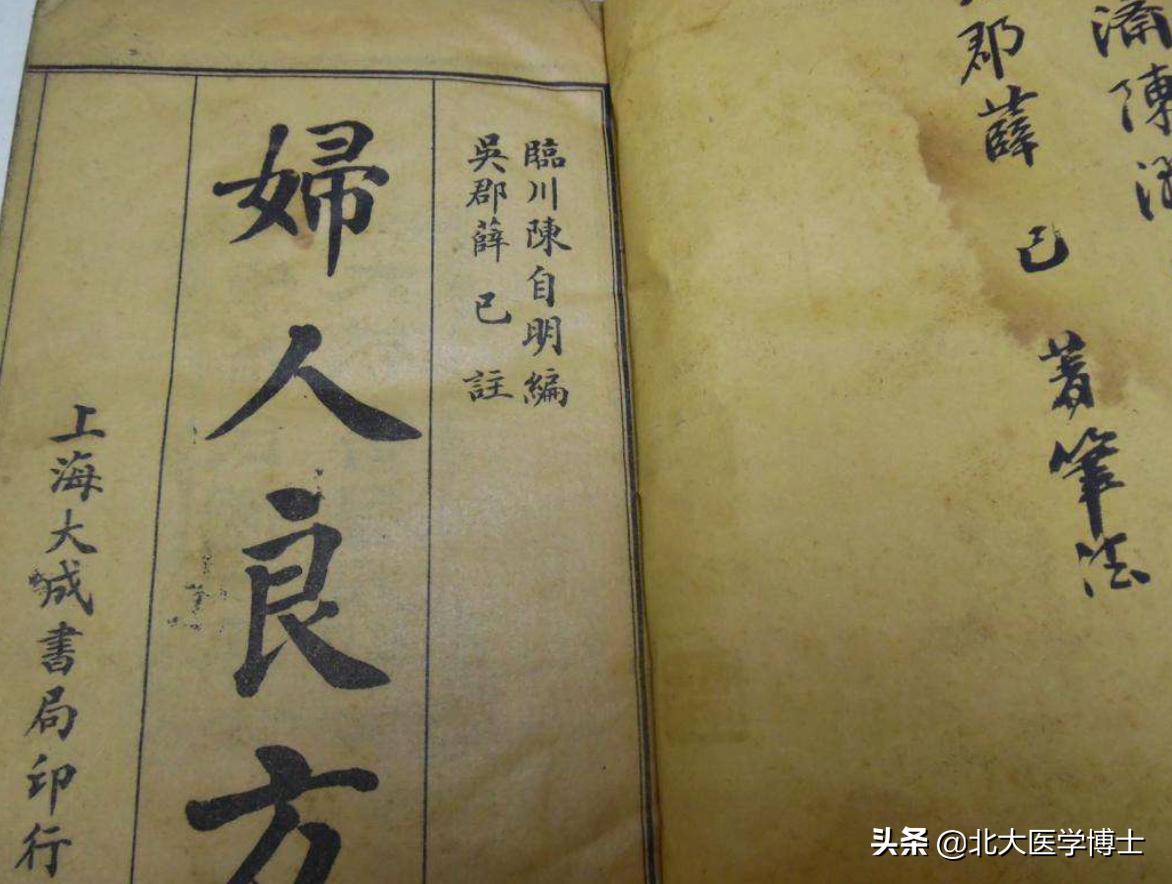 濟陳
郡薛已著筆法
臨川陳自明編
吳郡薛已註
婦人良方
上海大成書局印行
头条 @北大医学博士